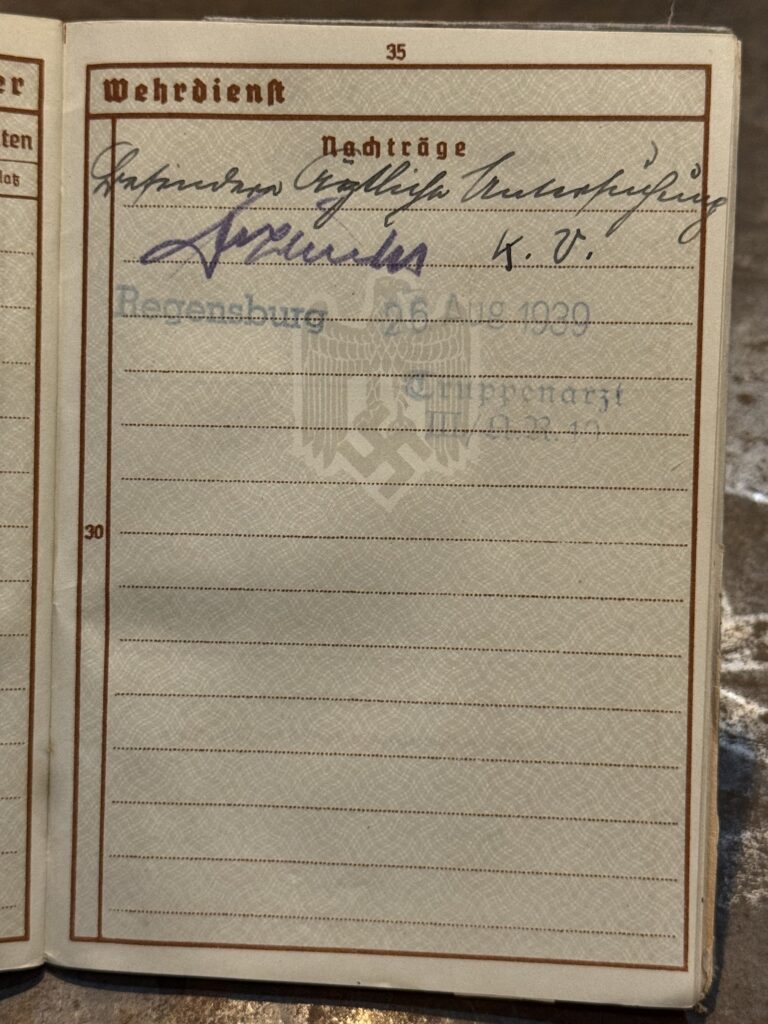 er
ten
latz
35
Wehrdienst
Nachträge
Besondere Ärztliche Untersuchung
K. V.
Regensburg 26 Aug 1939
Truppenarzt
III./A.R. 10
30